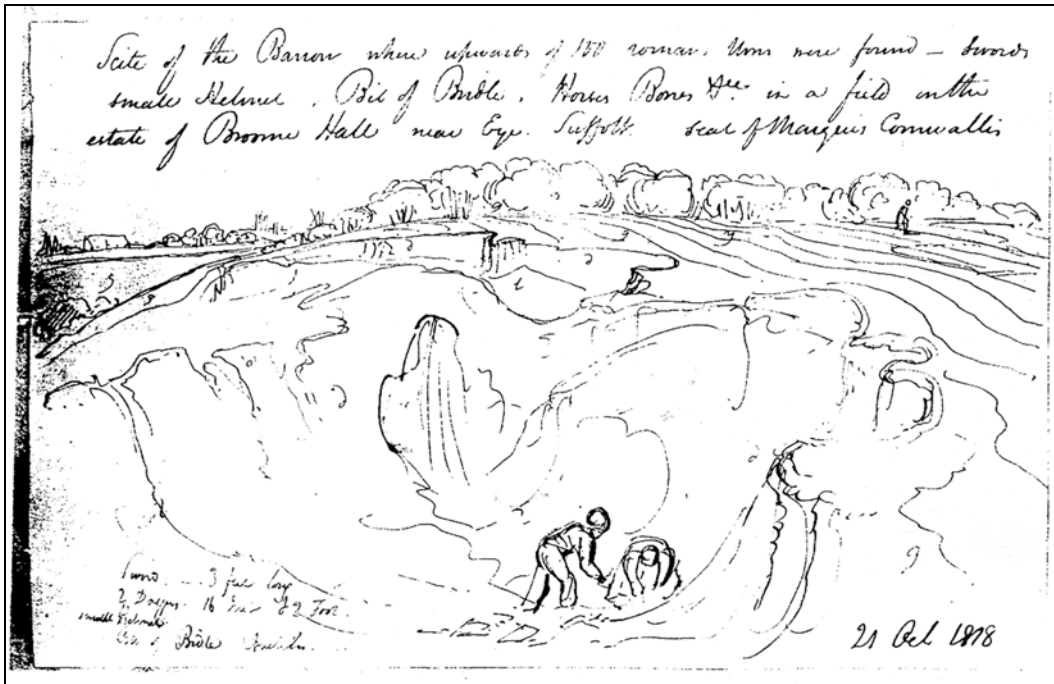 Scite of the Barrow where upwards of 150 roman. Urns were found – Swords
small Helmet. Bit of Bridle. Horses Bones &c. in a field on the
estate of Broome Hall near Eye. Suffolk. seat of Marquis Cornwallis
Sword 3 feet long
2 Daggers. 16 2 Foot
small Helmet
Bit of Bridle
21 Oct 1818